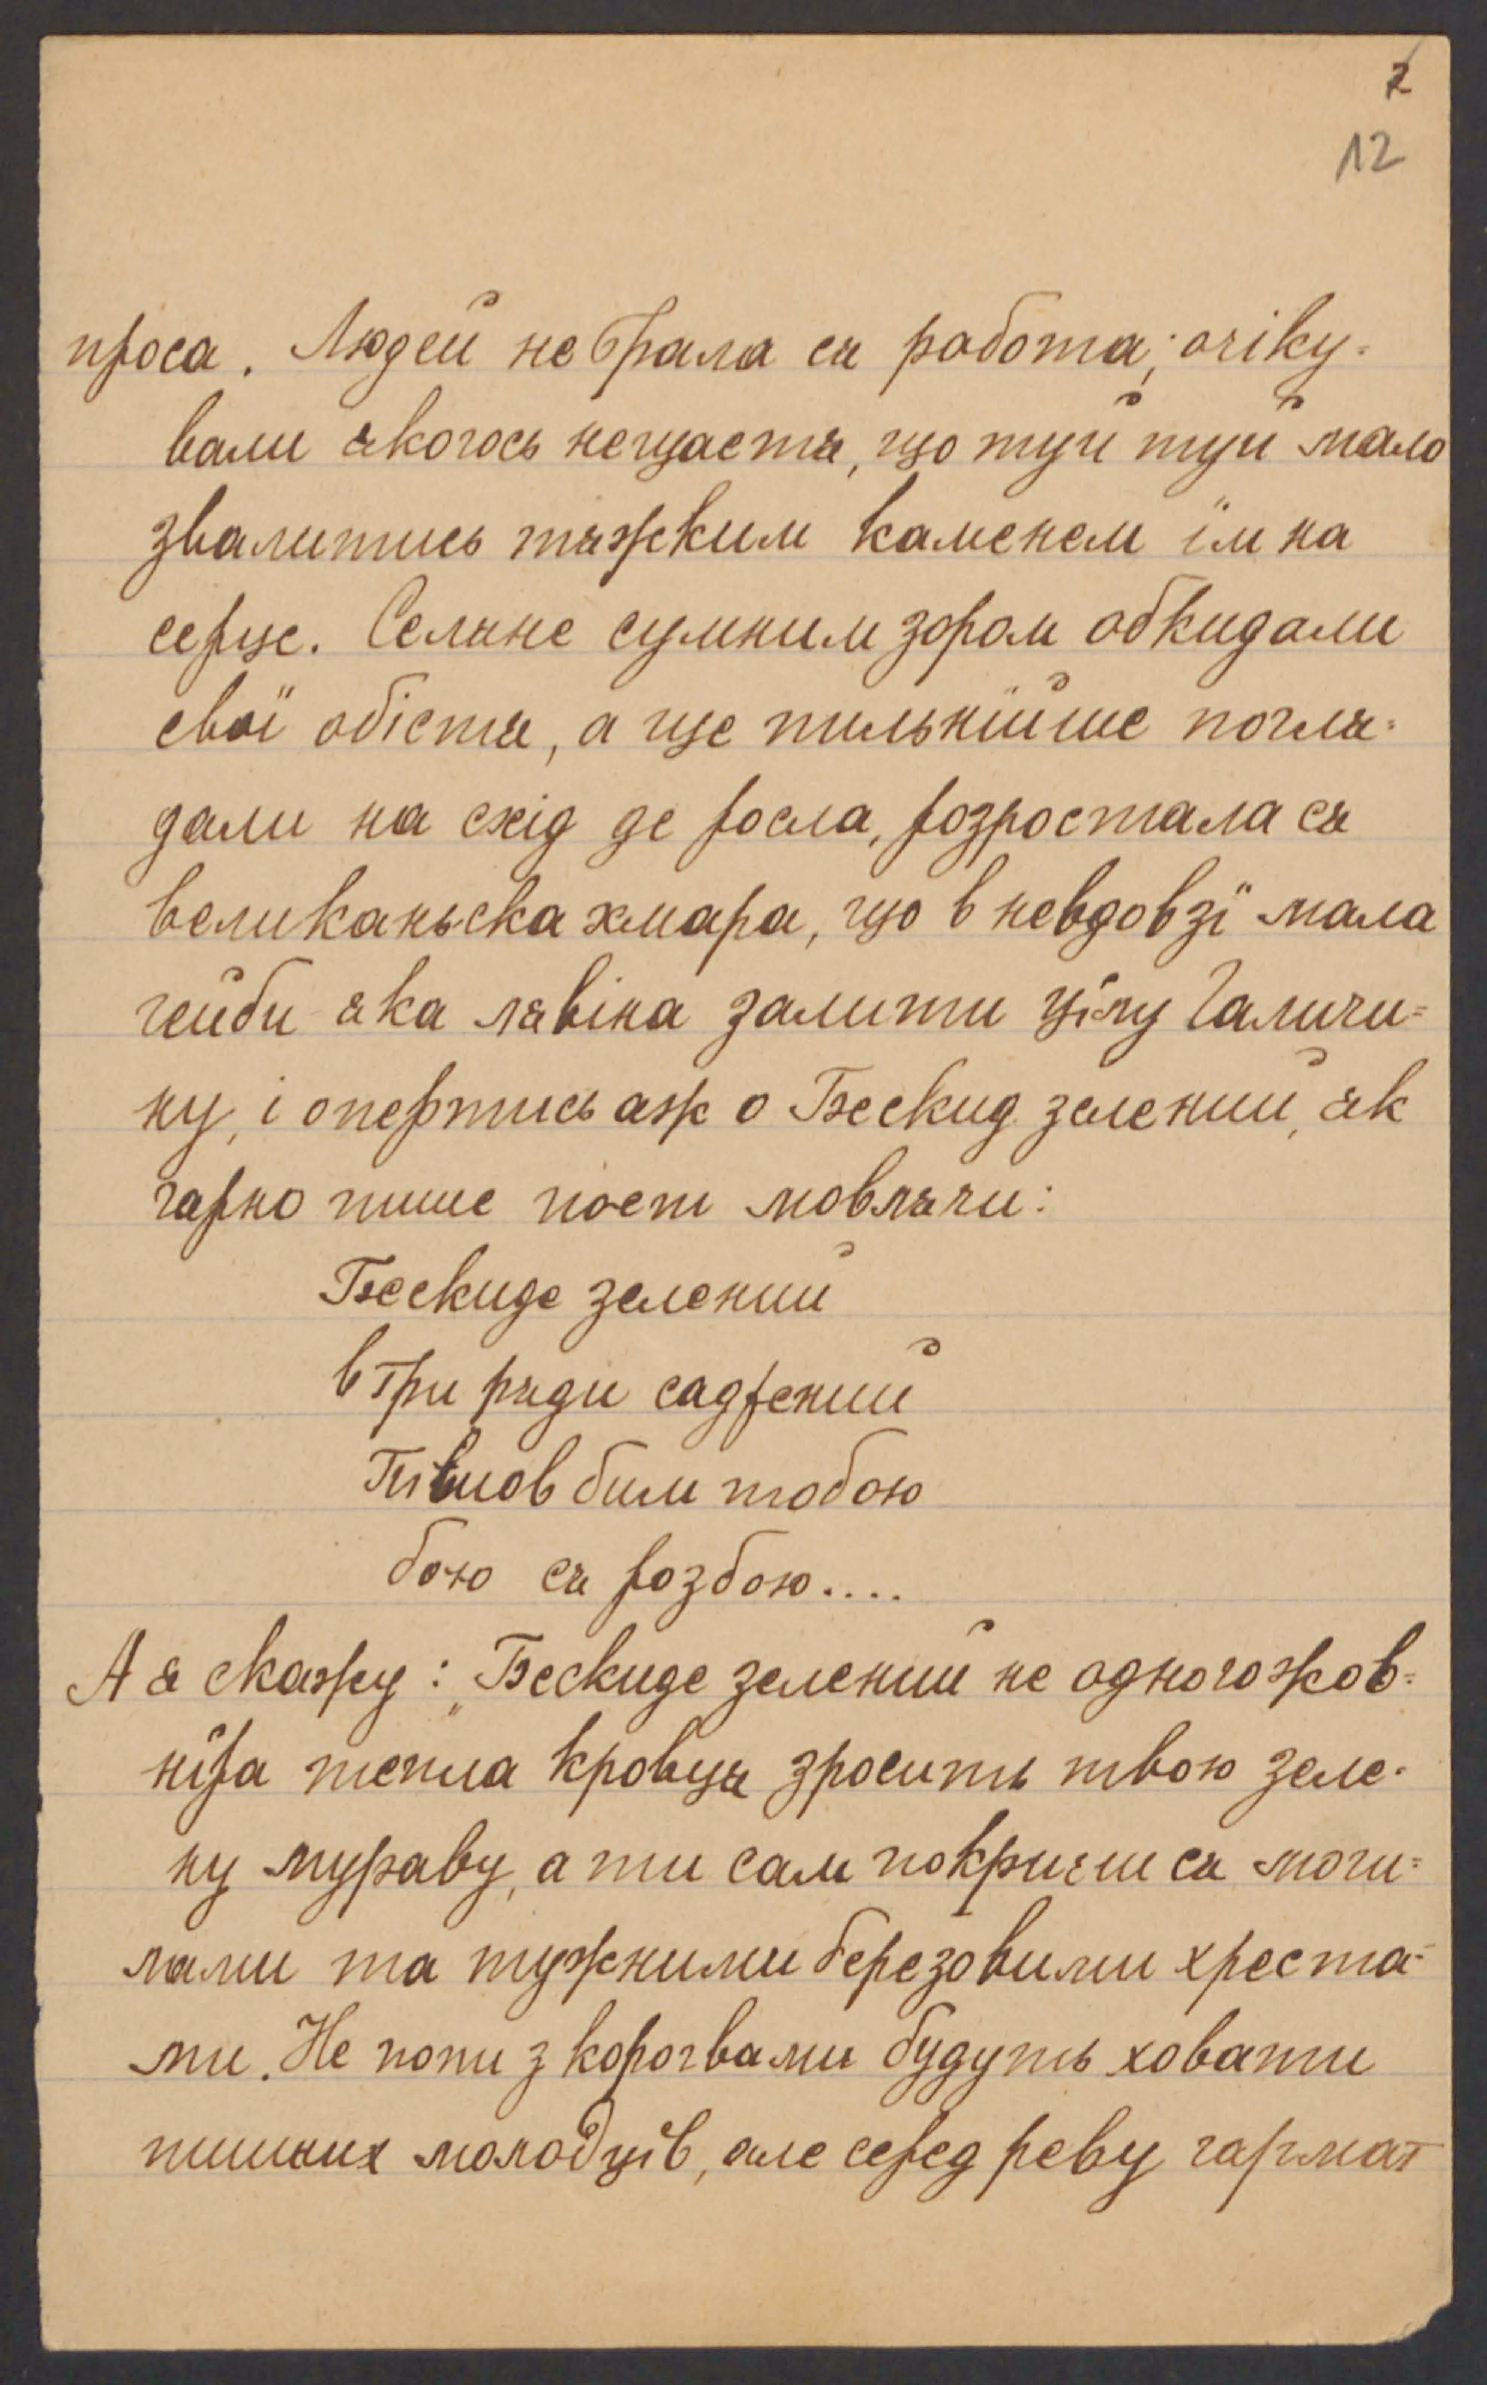 7
12
проса. Людей не брала ся работа; очіку-
вали якогось нещастя, що туй туй мало
звалитись тяжким каменем їм на
серце. Селяне сумним зором обкидали
свої обістя, а ще пильнійше погля-
дали на схід де росла, розростала ся
великаньска хмара, що в невдовзї мала
гейби яка лявіна залити цїлу Галичи=
ну, і опертись аж о Бескид зелений, як
гарно пише поет мовлячи:
Бескиде зелений
в три ряди саджений
бою ся розбою....
А я скажу: „Бескиде зелений не одного жов=
нїра тепла кровця зросить твою зеле-
ну мураву, а ти сам покриєш ся моги=
лами та тужними березовими хреста-
ми. Не попи з корогвами будуть ховати
пишних молодцїв, але серед реву гармат